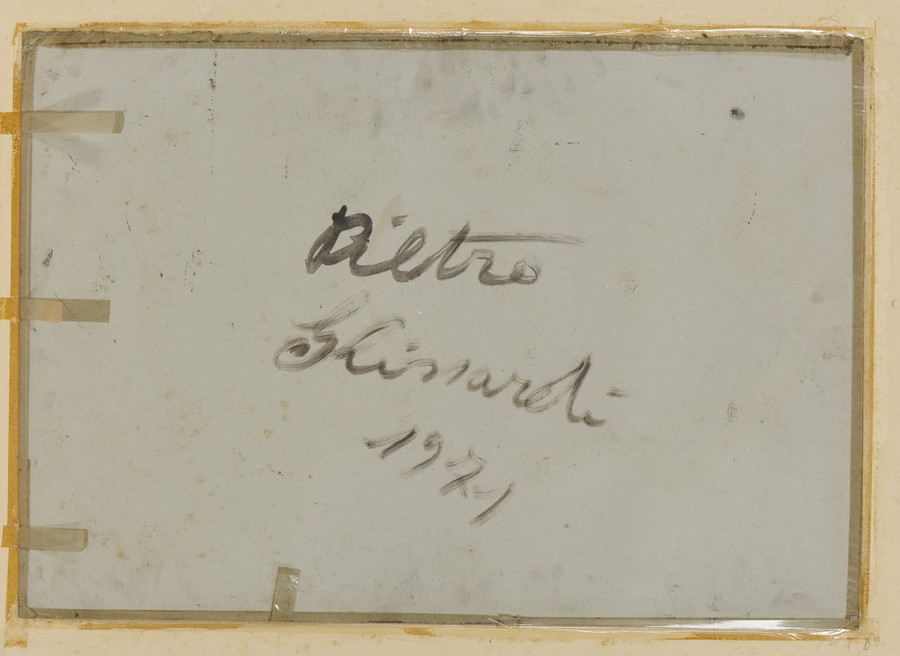 Pietro
Ghissardi
1971